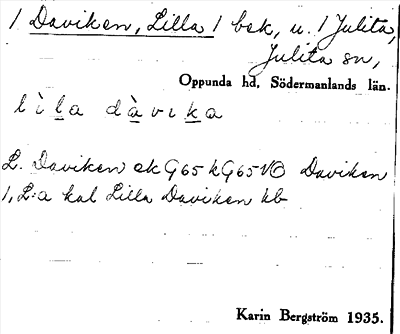 / Daviken, Lilla / bek, u. / Julita,
Julita sn,
Oppunda hd, Södermanlands län.
lìla dàvika
L. Daviken ek G65 kG65 VO Daviken
1, L:a kal Lilla Daviken kb
Karin Bergström 1935.